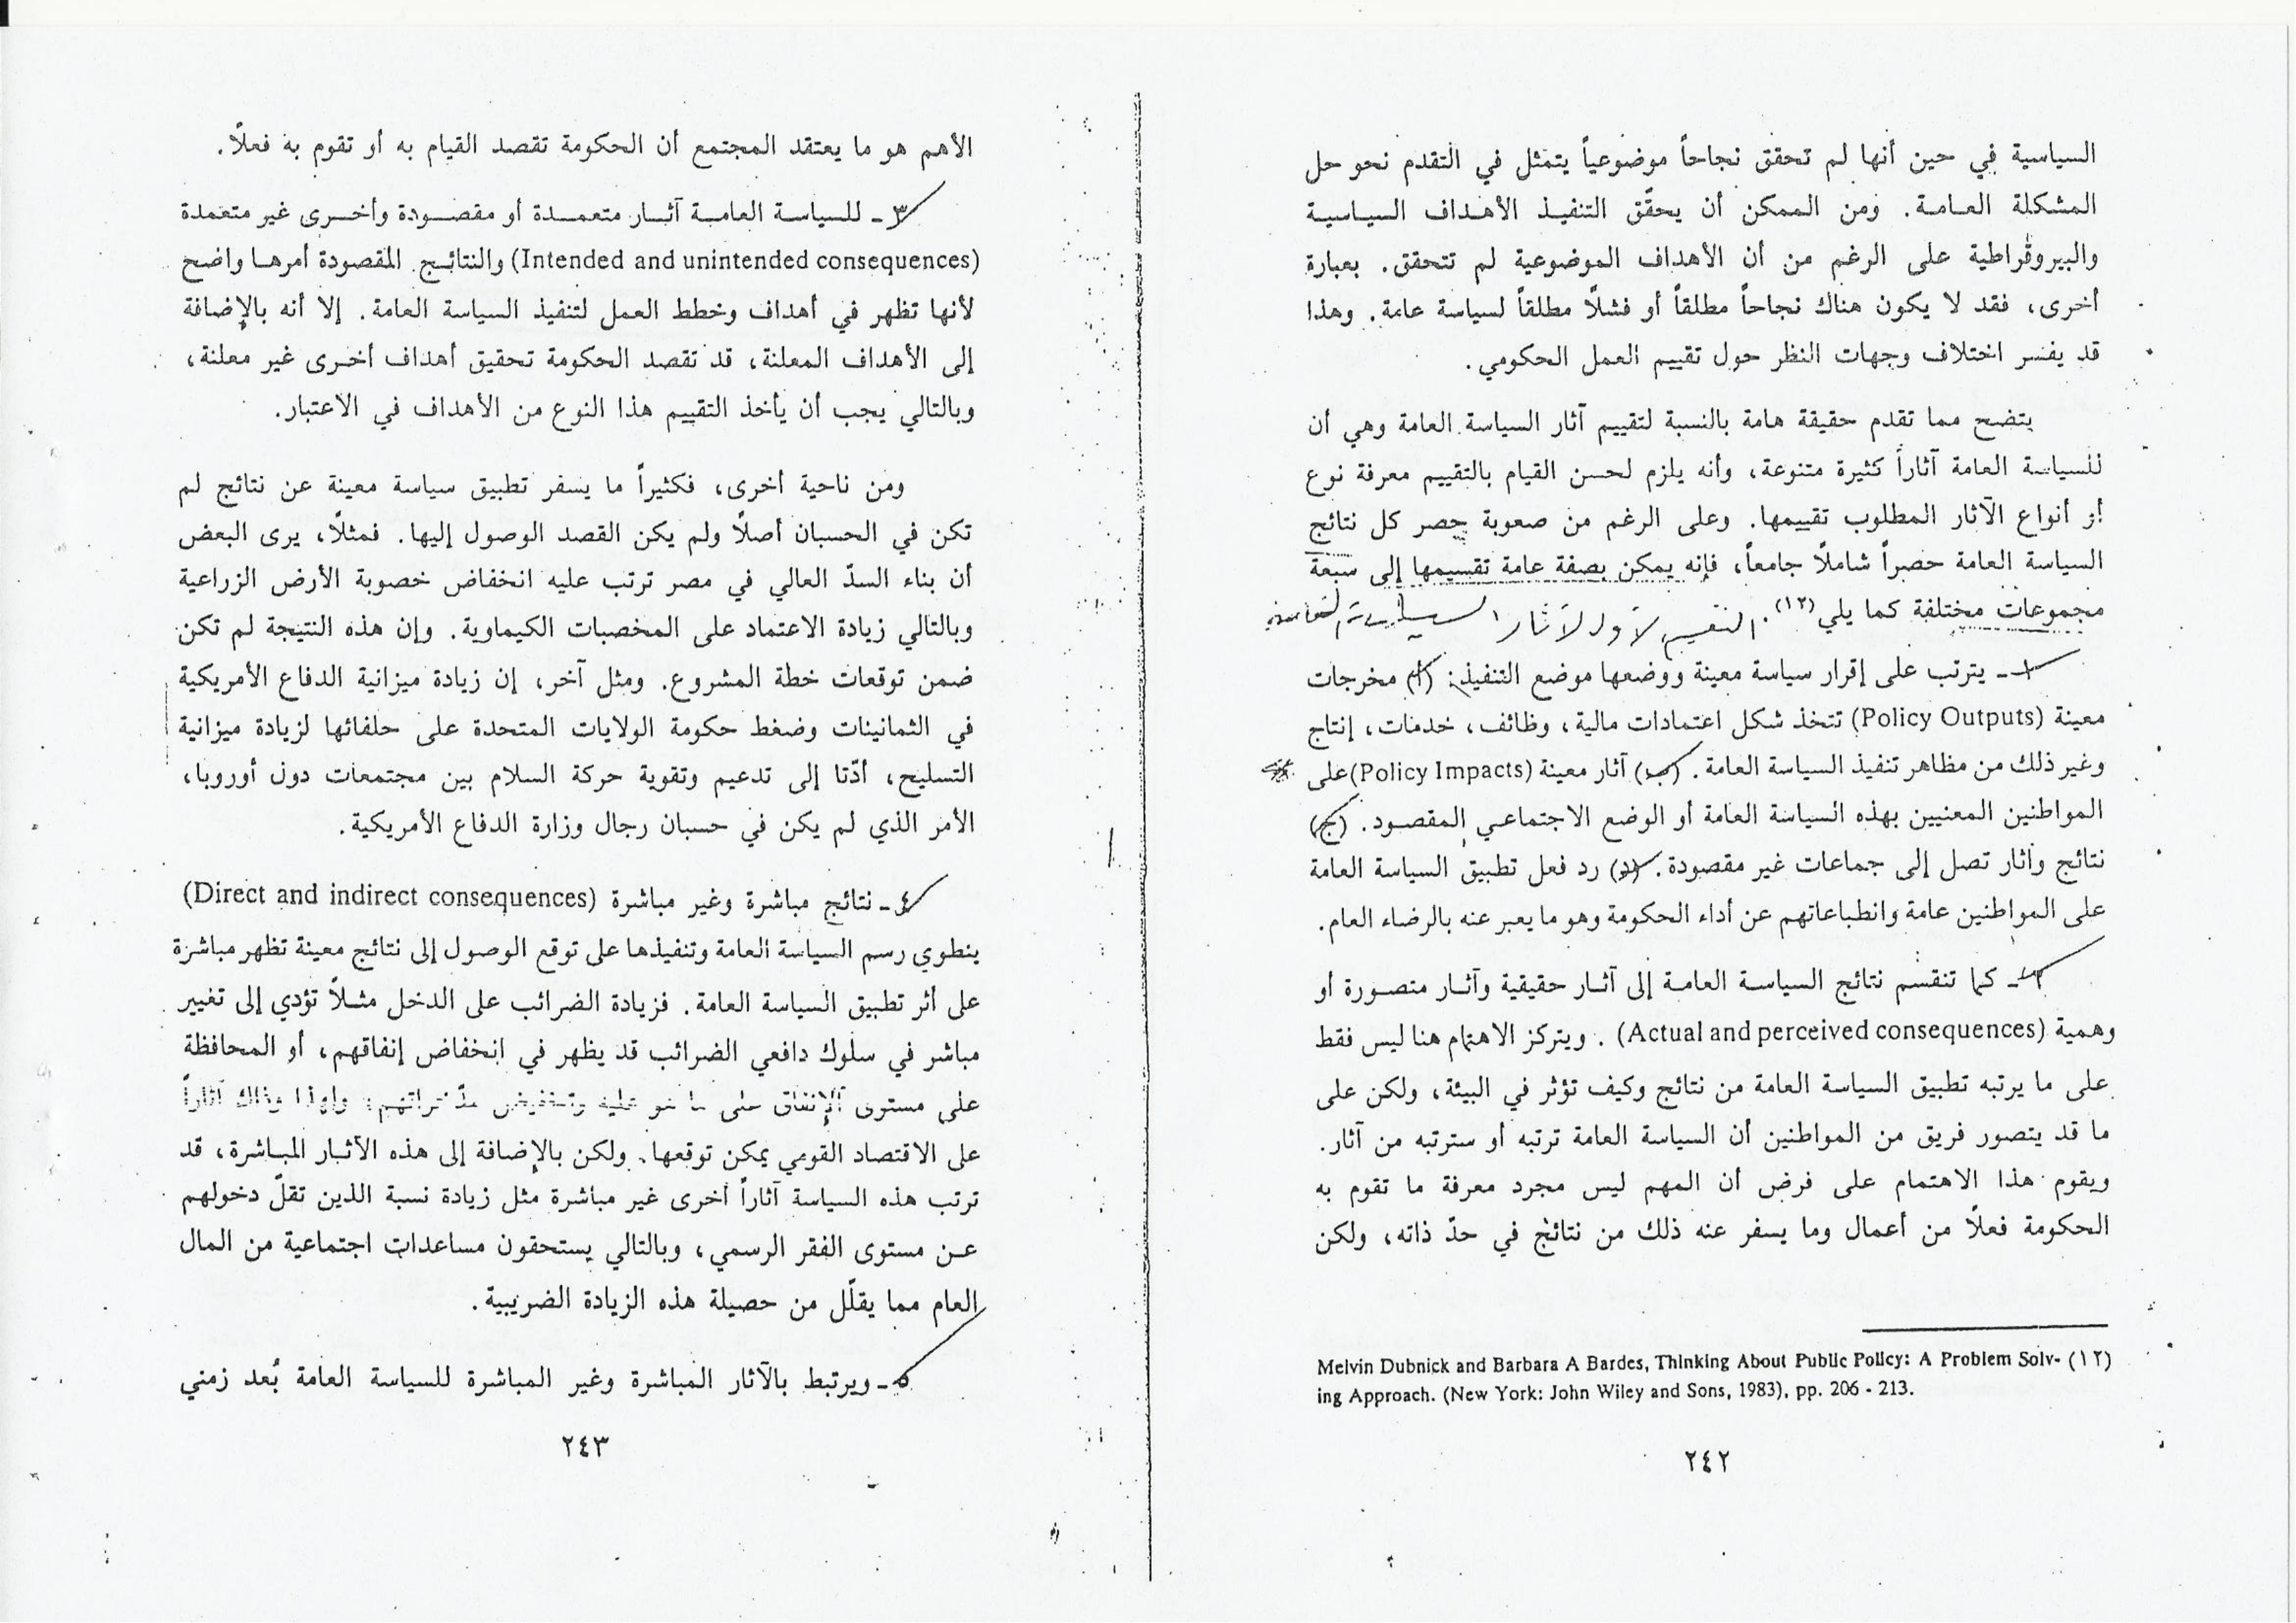 السياسية في حين أنها لم تحقق نجاحاً موضوعياً يتمثل في التقدم نحو حل
المشكلة العامة. ومن الممكن أن يحقّق التنفيذ الأهداف السياسية
والبيروقراطية على الرغم من أن الأهداف الموضوعية لم تتحقق. بعبارة
أخرى، فقد لا يكون هناك نجاحاً مطلقاً أو فشلاً مطلقاً لسياسة عامة. وهذا
قد يفسر اختلاف وجهات النظر حول تقييم العمل الحكومي.
يتضح مما تقدم حقيقة هامة بالنسبة لتقييم آثار السياسة العامة وهي أن
للسياسة العامة آثاراً كثيرة متنوعة، وأنه يلزم لحسن القيام بالتقييم معرفة نوع
أو أنواع الآثار المطلوب تقييمها. وعلى الرغم من صعوبة حصر كل نتائج
السياسة العامة حصراً شاملاً جامعاً، فإنه يمكن بصفة عامة تقسيمها إلى سبعة
مجموعات مختلفة كما يلي (١٢). التقسيم الأول لآثار السياسة العامة
١ ـ يترتب على إقرار سياسة معينة ووضعها موضع التنفيذ: (أ) مخرجات
معينة (Policy Outputs) تتخذ شكل اعتمادات مالية، وظائف، خدمات، إنتاج
وغير ذلك من مظاهر تنفيذ السياسة العامة. (ب) آثار معينة (Policy Impacts) على
المواطنين المعنيين بهذه السياسة العامة أو الوضع الاجتماعي المقصود. (ج)
نتائج وآثار تصل إلى جماعات غير مقصودة. (د) رد فعل تطبيق السياسة العامة
على المواطنين عامة وانطباعاتهم عن أداء الحكومة وهو ما يعبر عنه بالرضاء العام.
٢ ـ كما تنقسم نتائج السياسة العامة إلى آثار حقيقية وآثار متصورة أو
وهمية (Actual and perceived consequences). ويتركز الاهتمام هنا ليس فقط
على ما يرتبه تطبيق السياسة العامة من نتائج وكيف تؤثر في البيئة، ولكن على
ما قد يتصور فريق من المواطنين أن السياسة العامة ترتبه أو سترتبه من آثار.
ويقوم هذا الاهتمام على فرض أن المهم ليس مجرد معرفة ما تقوم به
الحكومة فعلاً من أعمال وما يسفر عنه ذلك من نتائج في حدّ ذاته، ولكن
(١٢) Melvin Dubnick and Barbara A Bardes, Thinking About Public Policy: A Problem Solv-
ing Approach. (New York: John Wiley and Sons, 1983), pp. 206 - 213.
٢٤٢
الأهم هو ما يعتقد المجتمع أن الحكومة تقصد القيام به أو تقوم به فعلاً.
٣ ـ للسياسة العامة آثار متعمدة أو مقصودة وأخرى غير متعمدة
(Intended and unintended consequences) والنتائج المقصودة أمرها واضح
لأنها تظهر في أهداف وخطط العمل لتنفيذ السياسة العامة. إلا أنه بالإضافة
إلى الأهداف المعلنة، قد تقصد الحكومة تحقيق أهداف أخرى غير معلنة،
وبالتالي يجب أن يأخذ التقييم هذا النوع من الأهداف في الاعتبار.
ومن ناحية أخرى، فكثيراً ما يسفر تطبيق سياسة معينة عن نتائج لم
تكن في الحسبان أصلاً ولم يكن القصد الوصول إليها. فمثلاً، يرى البعض
أن بناء السدّ العالي في مصر ترتب عليه انخفاض خصوبة الأرض الزراعية
وبالتالي زيادة الاعتماد على المخصبات الكيماوية. وإن هذه النتيجة لم تكن
ضمن توقعات خطة المشروع. ومثل آخر، إن زيادة ميزانية الدفاع الأمريكية
في الثمانينات وضغط حكومة الولايات المتحدة على حلفائها لزيادة ميزانية
التسليح، أدّتا إلى تدعيم وتقوية حركة السلام بين مجتمعات دول أوروبا،
الأمر الذي لم يكن في حسبان رجال وزارة الدفاع الأمريكية.
٤ ـ نتائج مباشرة وغير مباشرة (Direct and indirect consequences)
ينطوي رسم السياسة العامة وتنفيذها على توقع الوصول إلى نتائج معينة تظهر مباشرة
على أثر تطبيق السياسة العامة. فزيادة الضرائب على الدخل مثلاً تؤدي إلى تغيير
مباشر في سلوك دافعي الضرائب قد يظهر في انخفاض إنفاقهم، أو المحافظة
على مستوى الإنفاق على ما هو عليه وتخفيض مدّخراتهم، ولهذا وذاك آثاراً
على الاقتصاد القومي يمكن توقعها. ولكن بالإضافة إلى هذه الآثار المباشرة، قد
ترتب هذه السياسة آثاراً أخرى غير مباشرة مثل زيادة نسبة الذين تقلّ دخولهم
عن مستوى الفقر الرسمي، وبالتالي يستحقون مساعدات اجتماعية من المال
العام مما يقلّل من حصيلة هذه الزيادة الضريبية.
٥ ـ ويرتبط بالآثار المباشرة وغير المباشرة للسياسة العامة بُعد زمني
٢٤٣